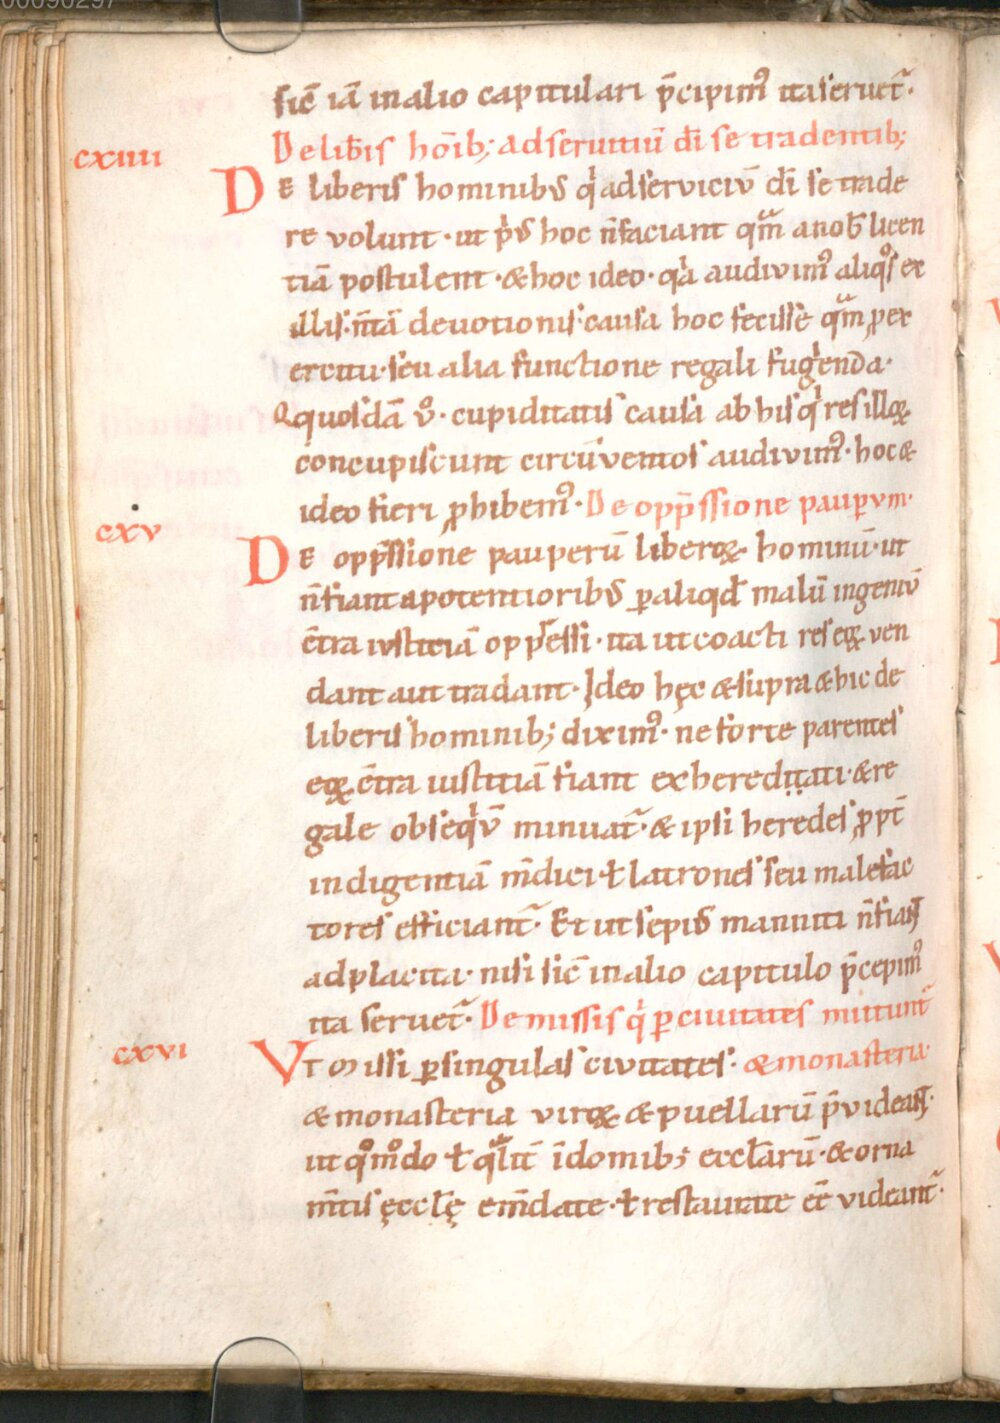 00090297
sic̄ iā in alio capitulari p̄cipimꝰ ita seruet᷑·
cxiiii
De lib̄is hoīb; ad seruitiū dī se tradentib;
DE liberis hominibus qͥ ad serviciū dī se trade
re volunt· ut pͥus hoc n̄ faciant qͣm a nob̄ licen
tiā postulent· & hoc ideo· qͥa audivimꝰ aliqͦs ex
illis· n̄ tā deuotionis causa hoc fecisse qͣm ꝓ ex
ercitu· seu alia functione regali fugͥenda·
Quosdā v̊· cupiditatis causa ab his qͥ res illoꝝ
concupiscunt circūventos audivimꝰ· hoc &
ideo fieri ꝓhibemꝰ· De opp̄ssione pauꝑum·
cxv
DE opp̄ssione pauperū liberoꝝ· hominū· ut
n̄ fiant a potentioribus ꝑ aliqd̄ malū ingeniū
c̄tra iusticiā opp̄essi· ita ut coacti res eoꝝ ven
dant aut tradant· Ideo hęc & supra & hic de
liberis hominib; diximꝰ· ne forte parentes
eoꝝ c̄tra iustitiā fiant exhereditati· & re
gale obseqͥū minuat᷑· & ipsi heredes ꝓpt̄
indigentiā m̄dici ł latrones seu malefac
tores efficiant᷑· Et ut sepius manniti n̄ fiant
ad placita· nisi sic̄ in alio capitulo p̄cepimꝰ
ita seruet᷑· De missis qͥ ꝑ ciuitates mittunt᷑
cxvi
VT missi ꝑ singulas civitates· & monasteria·
& monasteria viroꝝ & puellarū p̄videant·
ut qͦmͦdo ł qͣlit̄ ī domib; eccl̄arū· & orna
m̄tis ęccl̄ę em̄date· ł restaurate eē videant᷑·